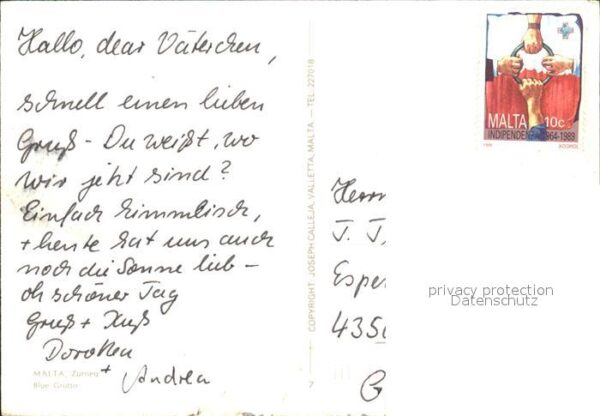 Hallo, dear Väterchen,
schnell einen lieben
Gruß - Du weißt, wo
wir jetzt sind?
Einfach himmlisch,
+ heute hat uns auch
noch die Sonne lieb -
oh schöner Tag
Gruß + Kuß
Dorothea
+ Andrea
MALTA, Zurrieq
Blue Grotto
COPYRIGHT: JOSEPH CALLEJA, VALLETTA, MALTA. — TEL. 227018
7
MALTA 10c
INDIPENDENZA 1964-1989
Herrn
J. J.
Esper
4350
privacy protection
Datenschutz